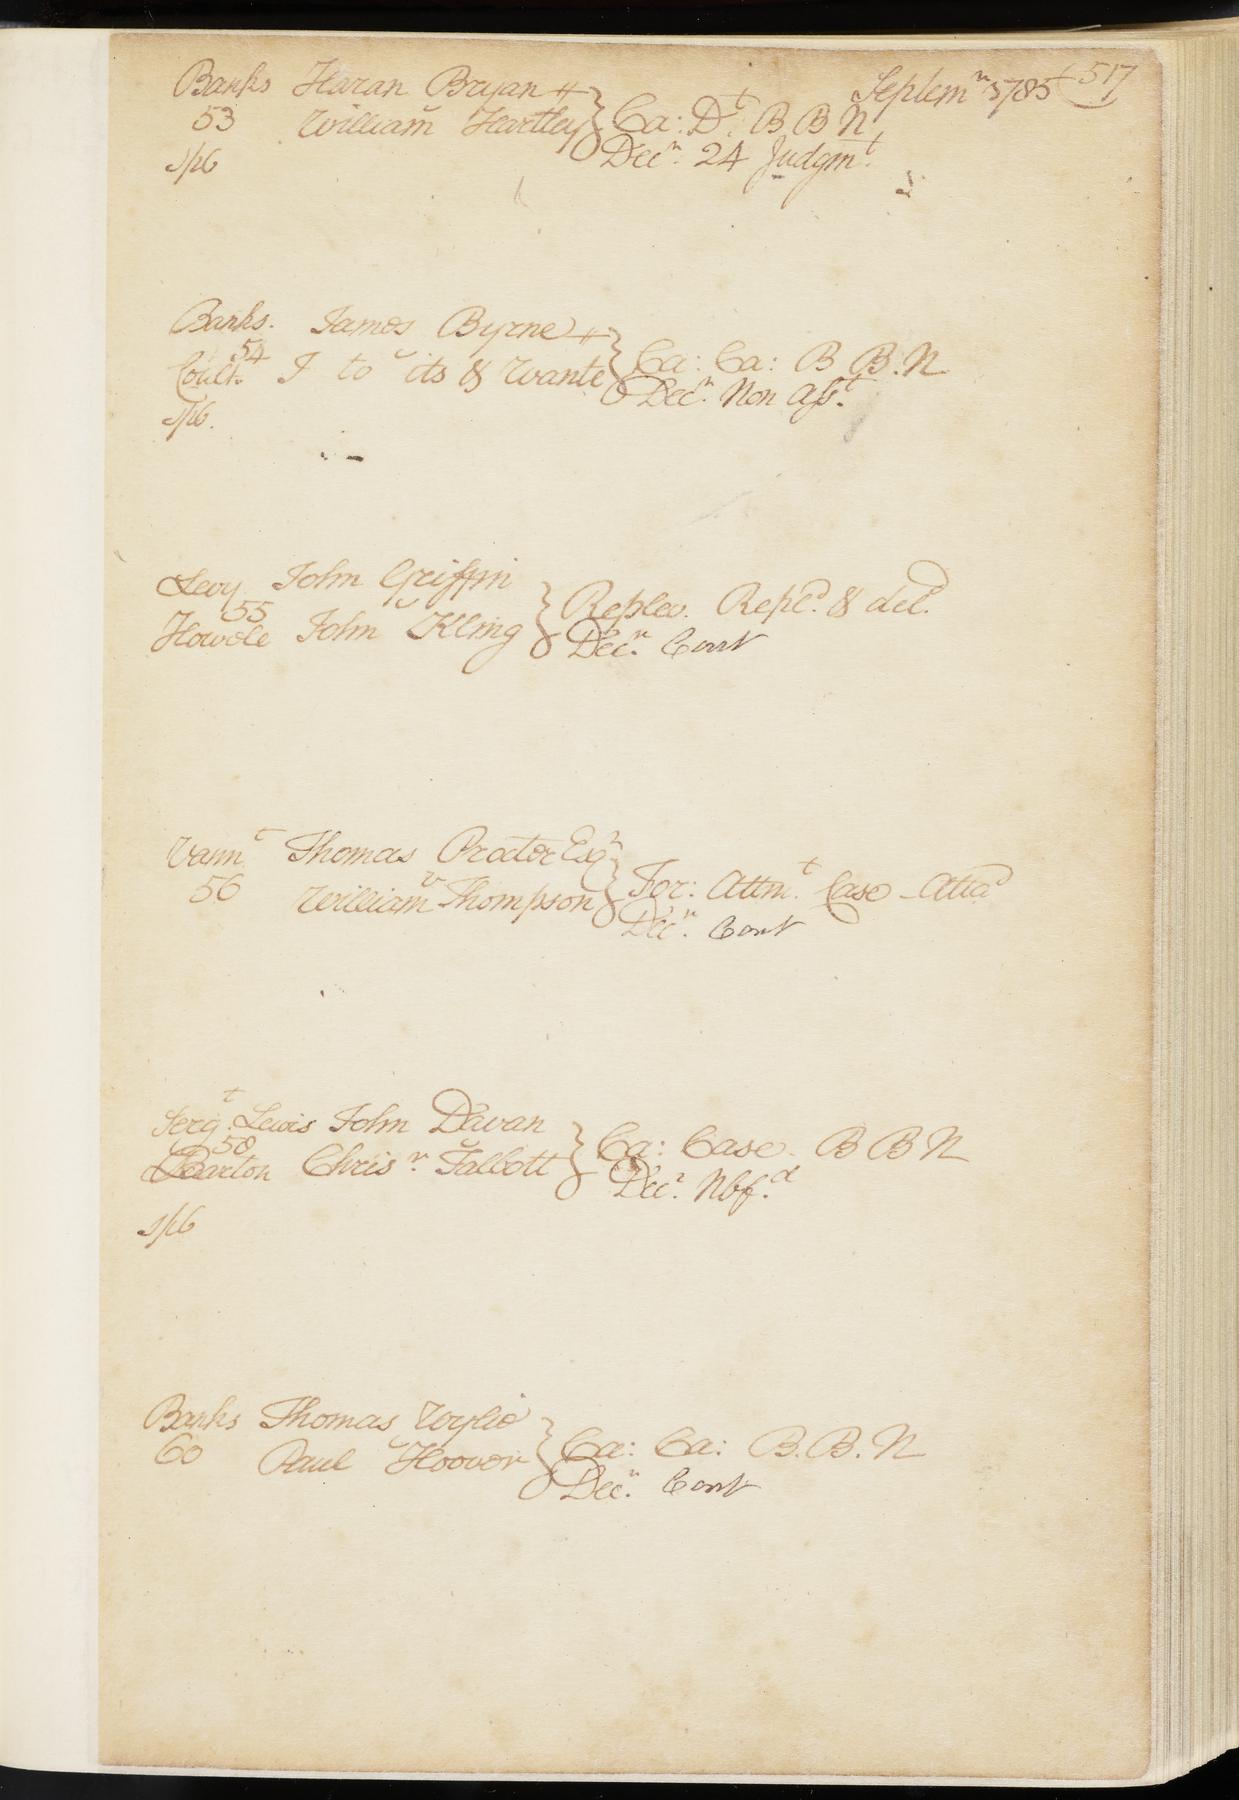 Septemr 1785 517
Banks Haran Bryan
v
53 William Hartley } Ca: Dt. B B N
1/6 Decr. 24 Judgmt.
Banks. James Byrne
54 v
Coult. J to its & Wante } Ca: Ca: B B.N
Decr. Non Asst.
1/6.
Levy John Griffin
55 v } Replev. Repld. & deld.
Howele John Kling Decr. Cont
Vannt Thomas Proctor Esqr
v
56 William Thompson } For: Attmt. Case Attad
Decr. Cont
Sergt. Lewis John Davan
58 v } Ca: Case. B B N
Barton Chrisr. Talbott Decr. Nbfd.
1/6
Banks Thomas Wylie
v
60 Paul Hoover } Ca: Ca: B.B.N
Decr. Cont